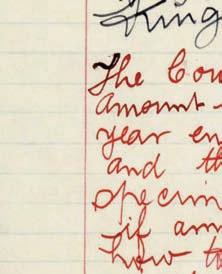 King
The Cou
amount
year en
and th
specim
if am
how t